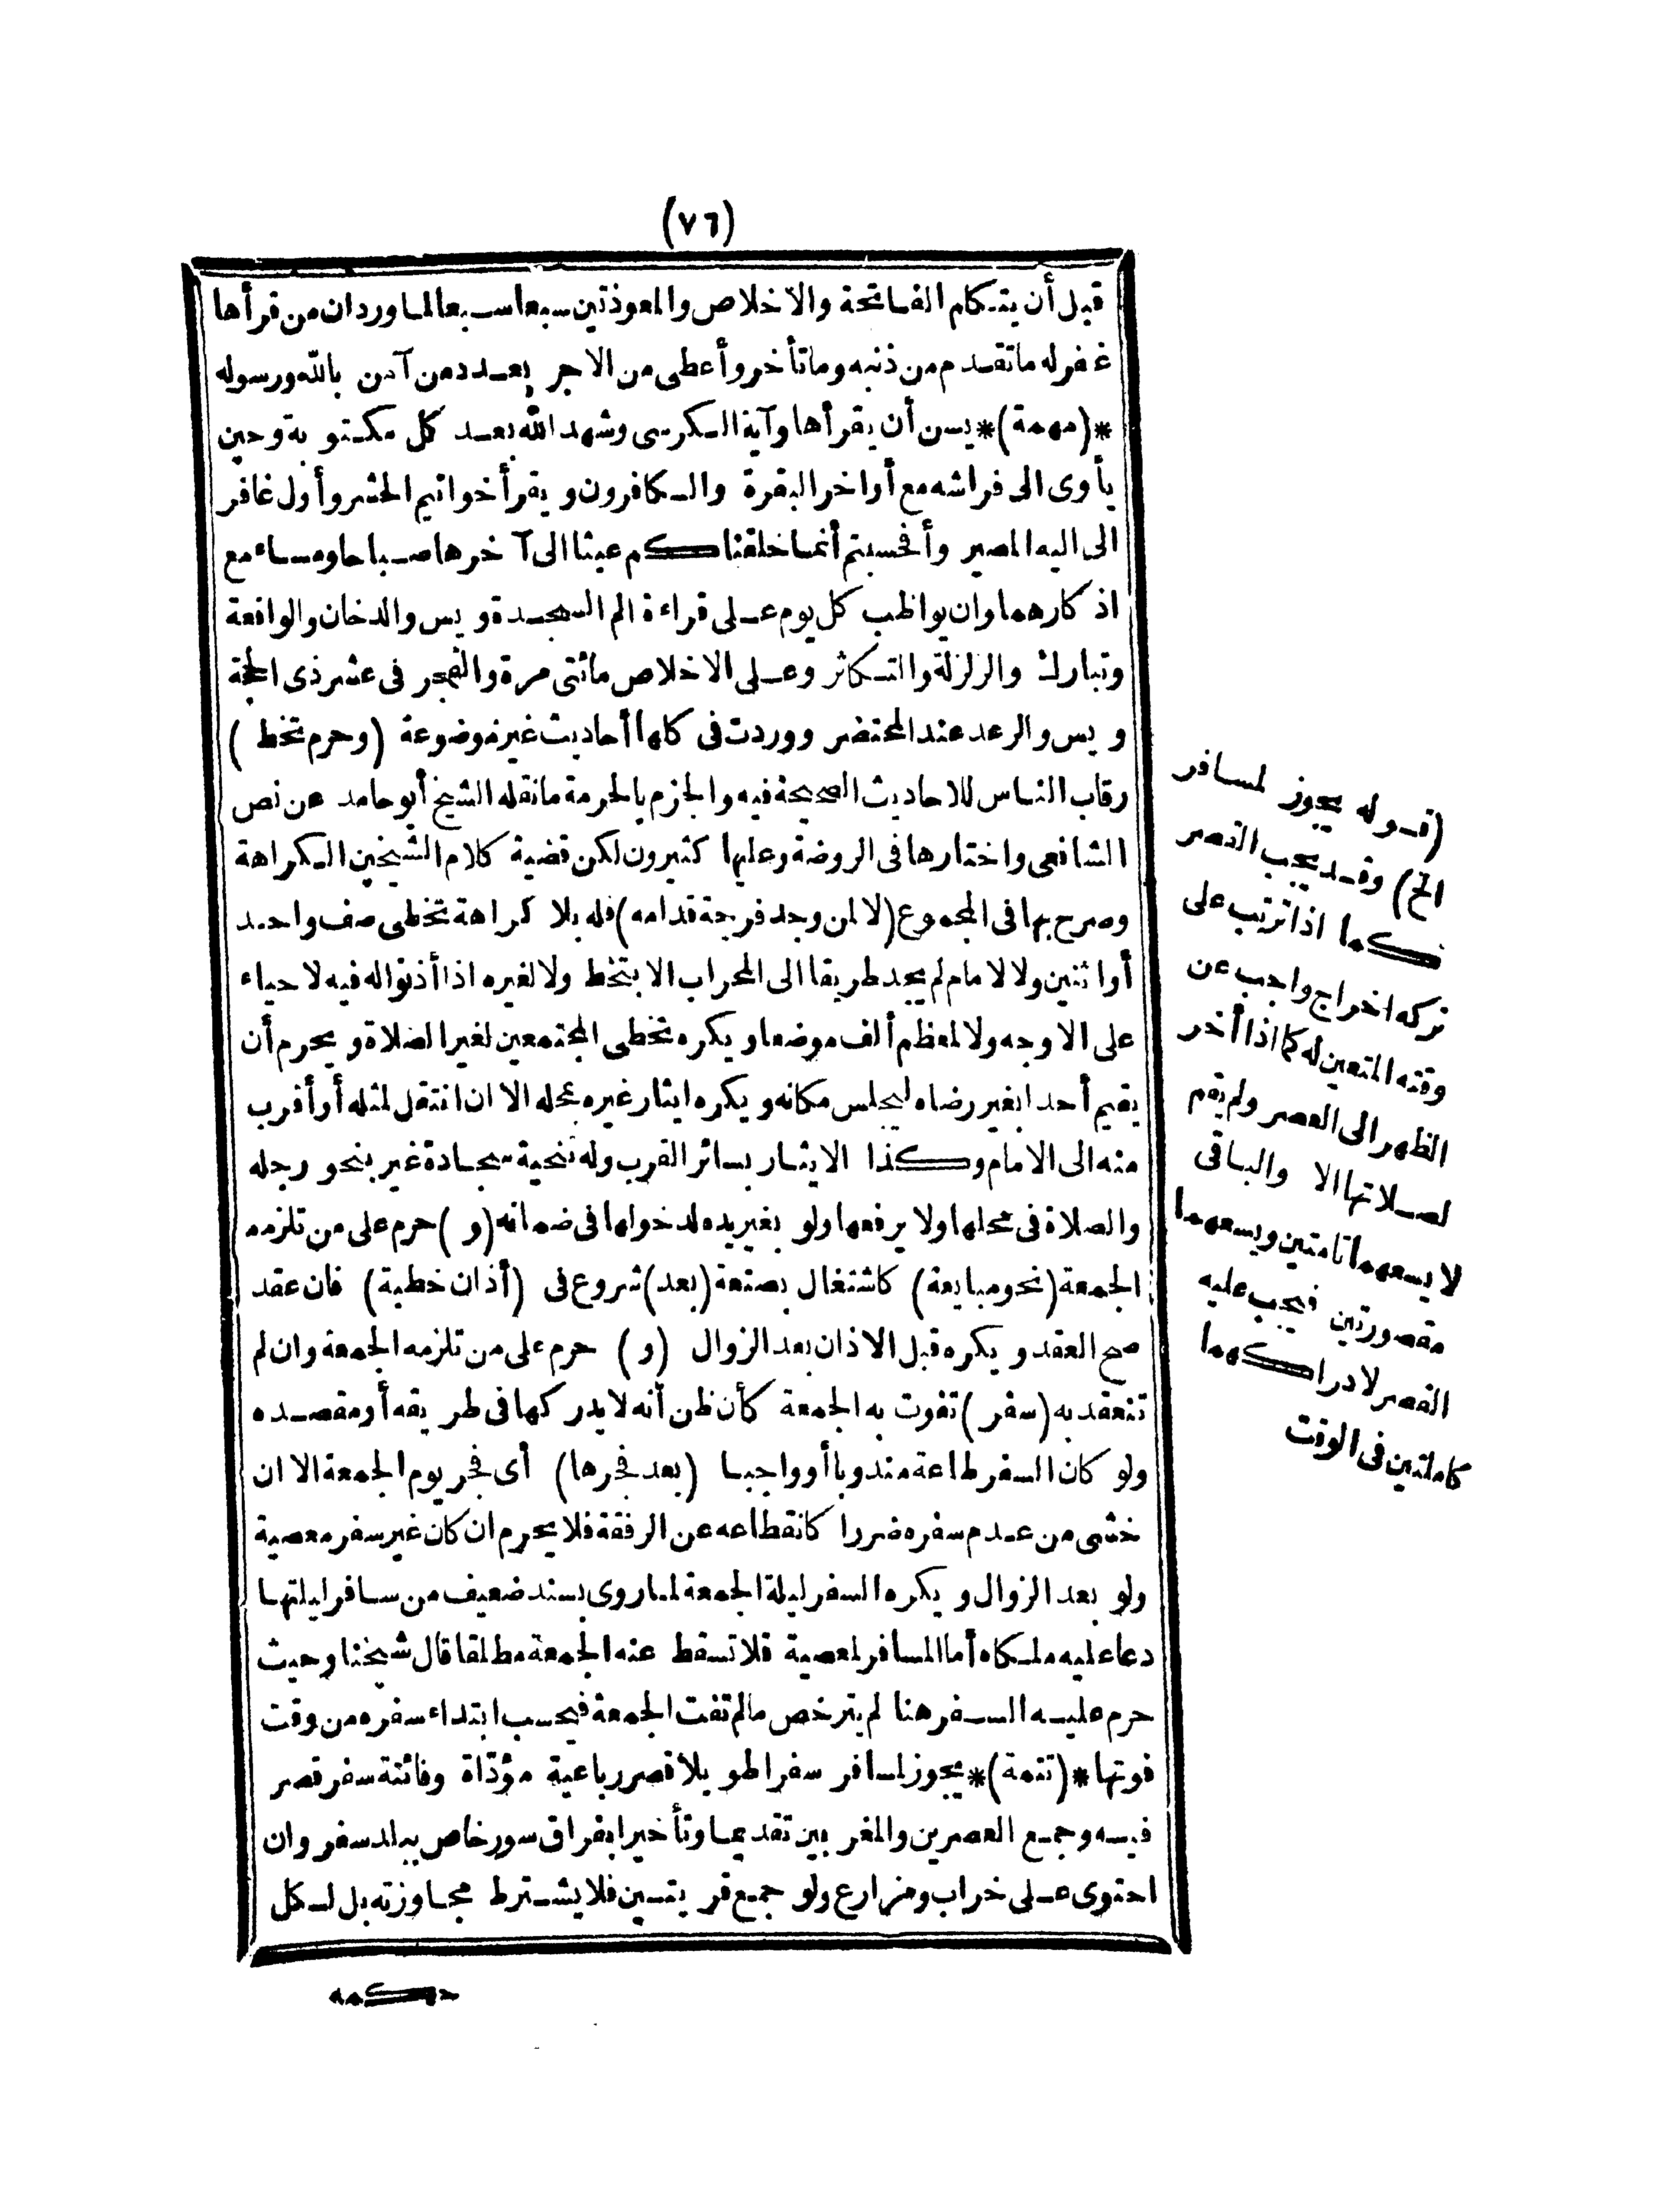 (٧٦)
قبل أن يتكلم الفاتحة والاخلاص والمعوذتين سبعا سبعا لما ورد ان من قرأها
غفر له ما تقدم من ذنبه وما تأخر وأعطى من الاجر بعدد من آمن بالله ورسوله
*(مهمة)* يسن أن يقرأها وآية الكرسى وشهد الله بعد كل مكتوبة وحين
يأوى الى فراشه مع أواخر البقرة والكافرون ويقرأ خواتيم الحشر وأول غافر
الى اليه المصير وأفحسبتم أنما خلقناكم عبثا الى آخرها صباحا ومساء مع
اذكارهما وان يواظب كل يوم على قراءة الم السجدة ويس والدخان والواقعة
وتبارك والزلزلة والتكاثر وعلى الاخلاص مائتى مرة والفجر فى عشر ذى الحجة
ويس والرعد عند المحتضر ووردت فى كلها أحاديث غير موضوعة (وحرم تخط)
رقاب الناس للاحاديث الصحيحة فيه والجزم بالحرمة ما نقله الشيخ أبو حامد عن نص
الشافعى واختارها فى الروضة وعليها كثيرون لكن قضية كلام الشيخين الكراهة
وصرح بها فى المجموع (لا لمن وجد فرجة قدامه) فله بلا كراهة تخطى صف واحد
أو اثنين ولا لامام لم يجد طريقا الى المحراب الا بتخط ولا لغيره اذا أذنوا له فيه لا حياء
على الاوجه ولا لمعظم ألف موضعا ويكره تخطى المجتمعين لغير الصلاة ويحرم أن
يقيم أحدا بغير رضاه ليجلس مكانه ويكره ايثار غيره بمحله الا ان انتقل لمثله أو أقرب
منه الى الامام وكذا الايثار بسائر القرب وله تنحية سجادة غير بنحو رجله
والصلاة فى محلها ولا يرفعها ولو بغير يده لدخولها فى ضمانه (و) حرم على من تلزمه
الجمعة (نحو مبايعة) كاشتغال بصنعة (بعد) شروع فى (أذان خطبة) فان عقد
صح العقد ويكره قبل الاذان بعد الزوال (و) حرم على من تلزمه الجمعة وان لم
تنعقد به (سفر) تفوت به الجمعة كأن ظن أنه لا يدركها فى طريقه أو مقصده
ولو كان السفر طاعة مندوبا أو واجبا (بعد فجرها) أى فجر يوم الجمعة الا ان
خشى من عدم سفره ضررا كانقطاعه عن الرفقة فلا يحرم ان كان غير سفر معصية
ولو بعد الزوال ويكره السفر ليلة الجمعة لما روى بسند ضعيف من سافر ليلتها
دعا عليه ملكاه أما المسافر لمعصية فلا تسقط عنه الجمعة مطلقا قال شيخنا وحيث
حرم عليه السفر هنا لم يترخص ما لم تفت الجمعة فيحسب ابتداء سفره من وقت
فوتها *(تتمة)* يجوز لمسافر سفرا طويلا قصر رباعية مؤداة وفائتة سفر قصر
فيه وجمع العصرين والمغربين تقديما وتأخيرا بفراق سور خاص ببلد سفر وان
احتوى على خراب ومزارع ولو جمع قريتين فلا يشترط مجاوزته بل لكل
حكمه
(قوله يجوز لمسافر
الخ) وقد يجب القصر
كما اذا ترتب على
تركه اخراج واجب عن
وقته المتعين له كما اذا أخر
الظهر الى العصر ولم يقم
لصلاتها الا والباقى
لا يسعهما تامتين ويسعهما
مقصورتين فيجب عليه
القصر لادراكهما
كاملتين فى الوقت